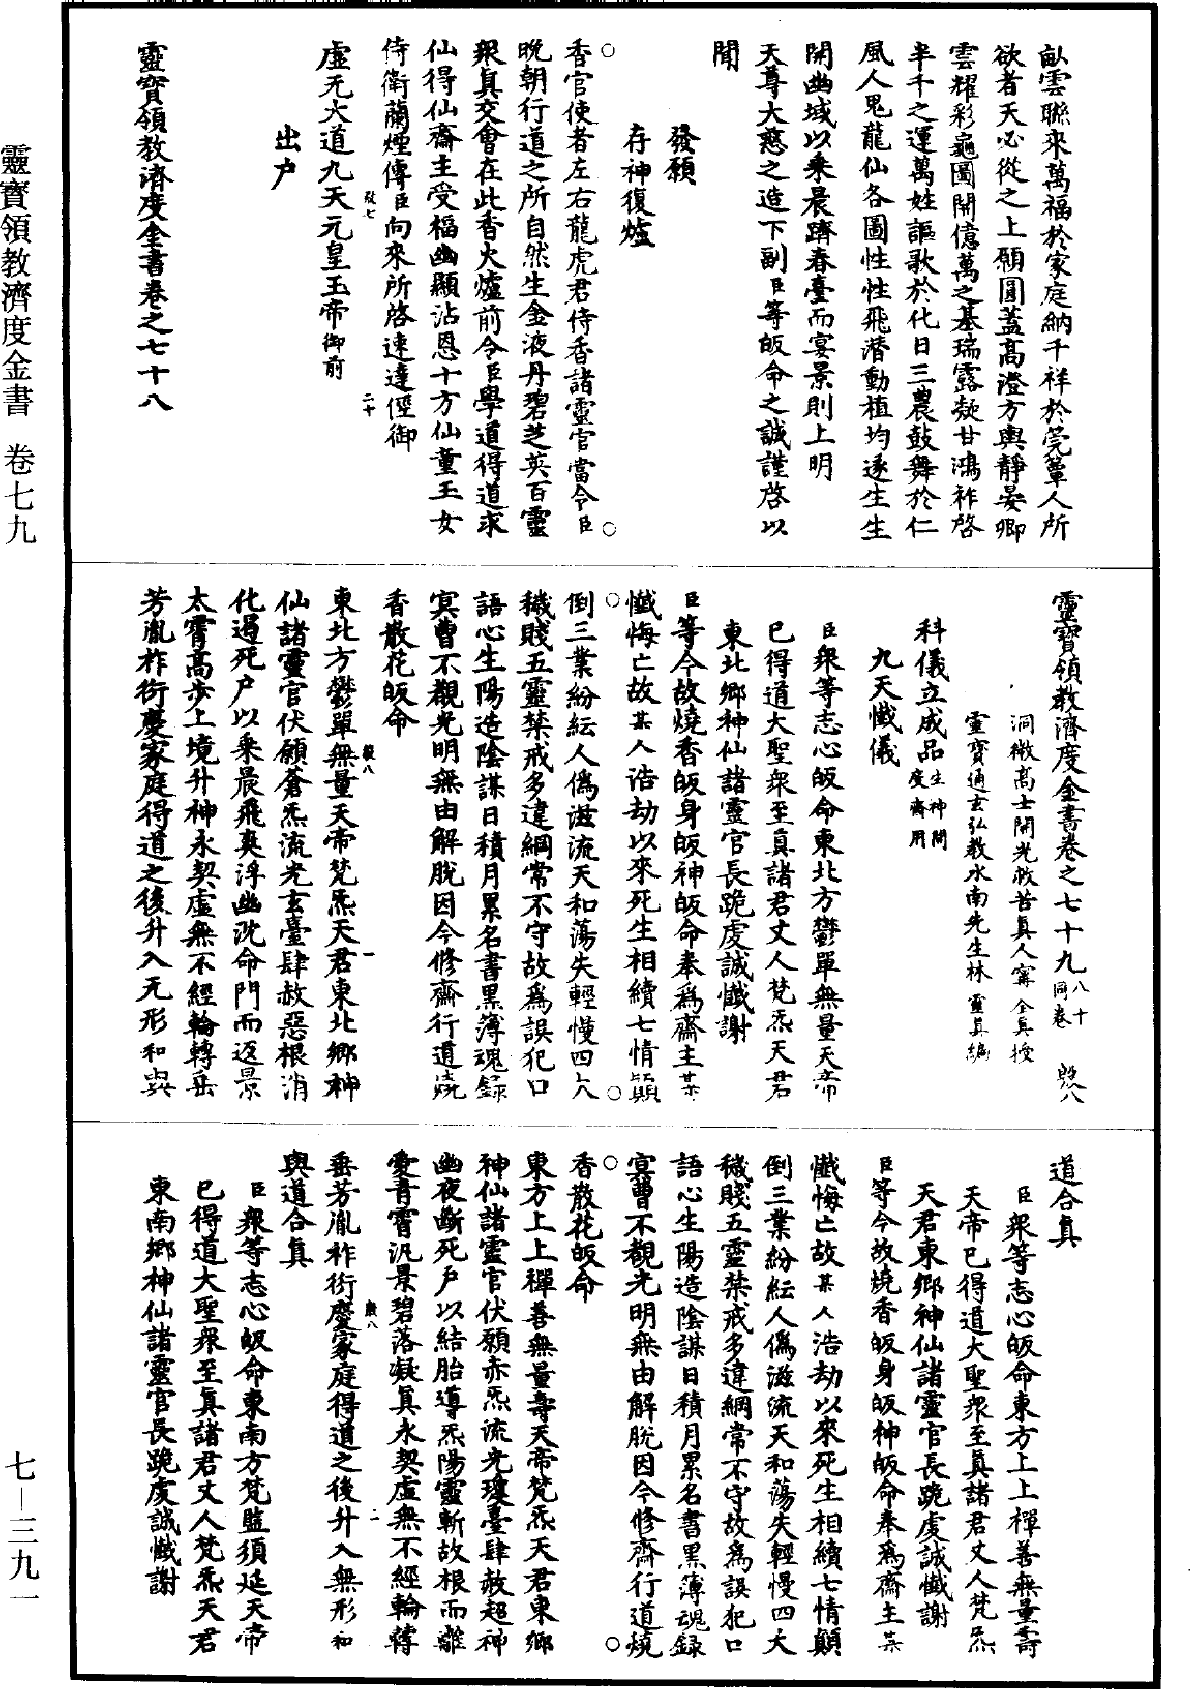 畝雲聯來萬福於家庭納千祥於莞簟人所
欲者天必從之上願圓蓋高澄方輿靜晏卿
雲耀彩龜圖開億萬之基瑞露凝甘鴻祚啓
半千之運萬姓謳歌於化日三農鼓舞於仁
風人鬼龍仙各圖性性飛潜動植均遂生生
開幽域以乗晨躋春臺而宴景則上明
天尊大慈之造下副臣等皈命之誠謹啓以
聞
發願
存神復爐
香官使者左右龍虎君侍香諸靈官當令臣
晚朝行道之所自然生金液丹碧芝英百靈
衆真交會在此香火爐前令臣學道得道求
仙得仙齋主受福幽顯沾恩十方仙童玉女
侍衛蘭煙傳臣向來所啓速達俓御
虛无大道九天元皇玉帝御前
出户
靈寳領教濟度金書卷之七十八
靈寳領教濟度金書卷之七十九 八十同卷 殷八
洞微高士開光救苦真人甯全真授
靈寳通玄弘教水南先生林靈真編
科儀立成品 生神開度齋用
九天懺儀
臣衆等志心皈命東北方鬱單無量天帝
已得道大聖衆至真諸君丈人梵炁天君
東北鄉神仙諸靈官長跪虔誠懺謝
臣等今故燒香皈身皈神皈命奉爲齋主某
懺悔亡故某人浩劫以來死生相續七情顛
倒三業紛紜人僞滋流天和蕩失輕慢四大
穢賤五靈禁戒多違綱常不守故爲誤犯口
語心生陽造陰謀日積月累名書黒簿魂録
㝠曹不觀光明無由解脫因今修齋行道燒
香散花皈命
東北方鬱單無量天帝梵炁天君東北鄉神
仙諸靈官伏願蒼炁流光玄臺肆赦惡根消
化過死户以乗晨飛爽浮幽沈命門而返景
太霄高步上境升神永契虛無不經輪轉岳
芳胤祚衍慶家庭得道之後升入无形和與
道合真
臣衆等志心皈命東方上上禪善無量壽
天帝已得道大聖衆至真諸君丈人梵炁
天君東鄉神仙諸靈官長跪虔誠懺謝
臣等今故燒香皈身皈神皈命奉爲齋主某
懺悔亡故某人浩劫以來死生相續七情顛
倒三業紛紜人僞滋流天和蕩失輕慢四大
穢賤五靈禁戒多違綱常不守故爲誤犯口
語心生陽造陰謀日積月累名書黒簿魂録
㝠曹不覩光明無由解脫因今修齋行道燒
香散花皈命
東方上上禪善無量壽天帝梵炁天君東鄉
神仙諸靈官伏願赤炁流光瓊臺肆赦超神
幽夜斷死戶以結胎導炁陽靈斬故根而離
愛青霄汎景碧落凝真永契虛無不經輪轉
垂芳胤祚衍慶家庭得道之後升入無形和
與道合真
臣衆等志心皈命東南方梵監須延天帝
已得道大聖衆至真諸君丈人梵炁天君
東南鄉神仙諸靈官長跪虔誠懺謝
殷七 二十
殷八 一
殷八 二
靈寶領教濟度金書 卷七九
七－三九一